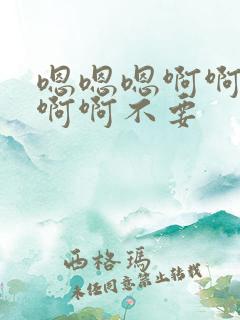 嗯嗯嗯啊啊
啊啊不要
西格玛
未经同意禁止转载